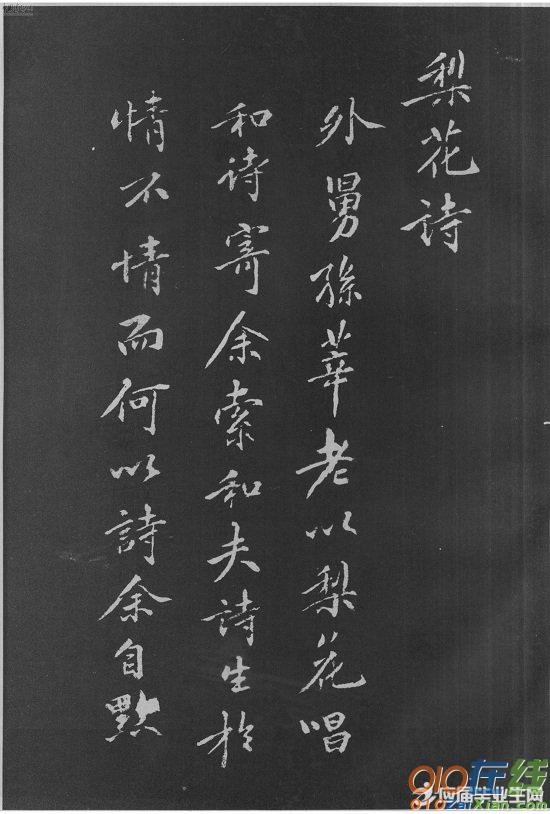 梨花詩
外舅孫莘老以梨花唱
和诗寄余索和夫詩生於
情不情而何以詩余自點
910在线
应届毕业生网